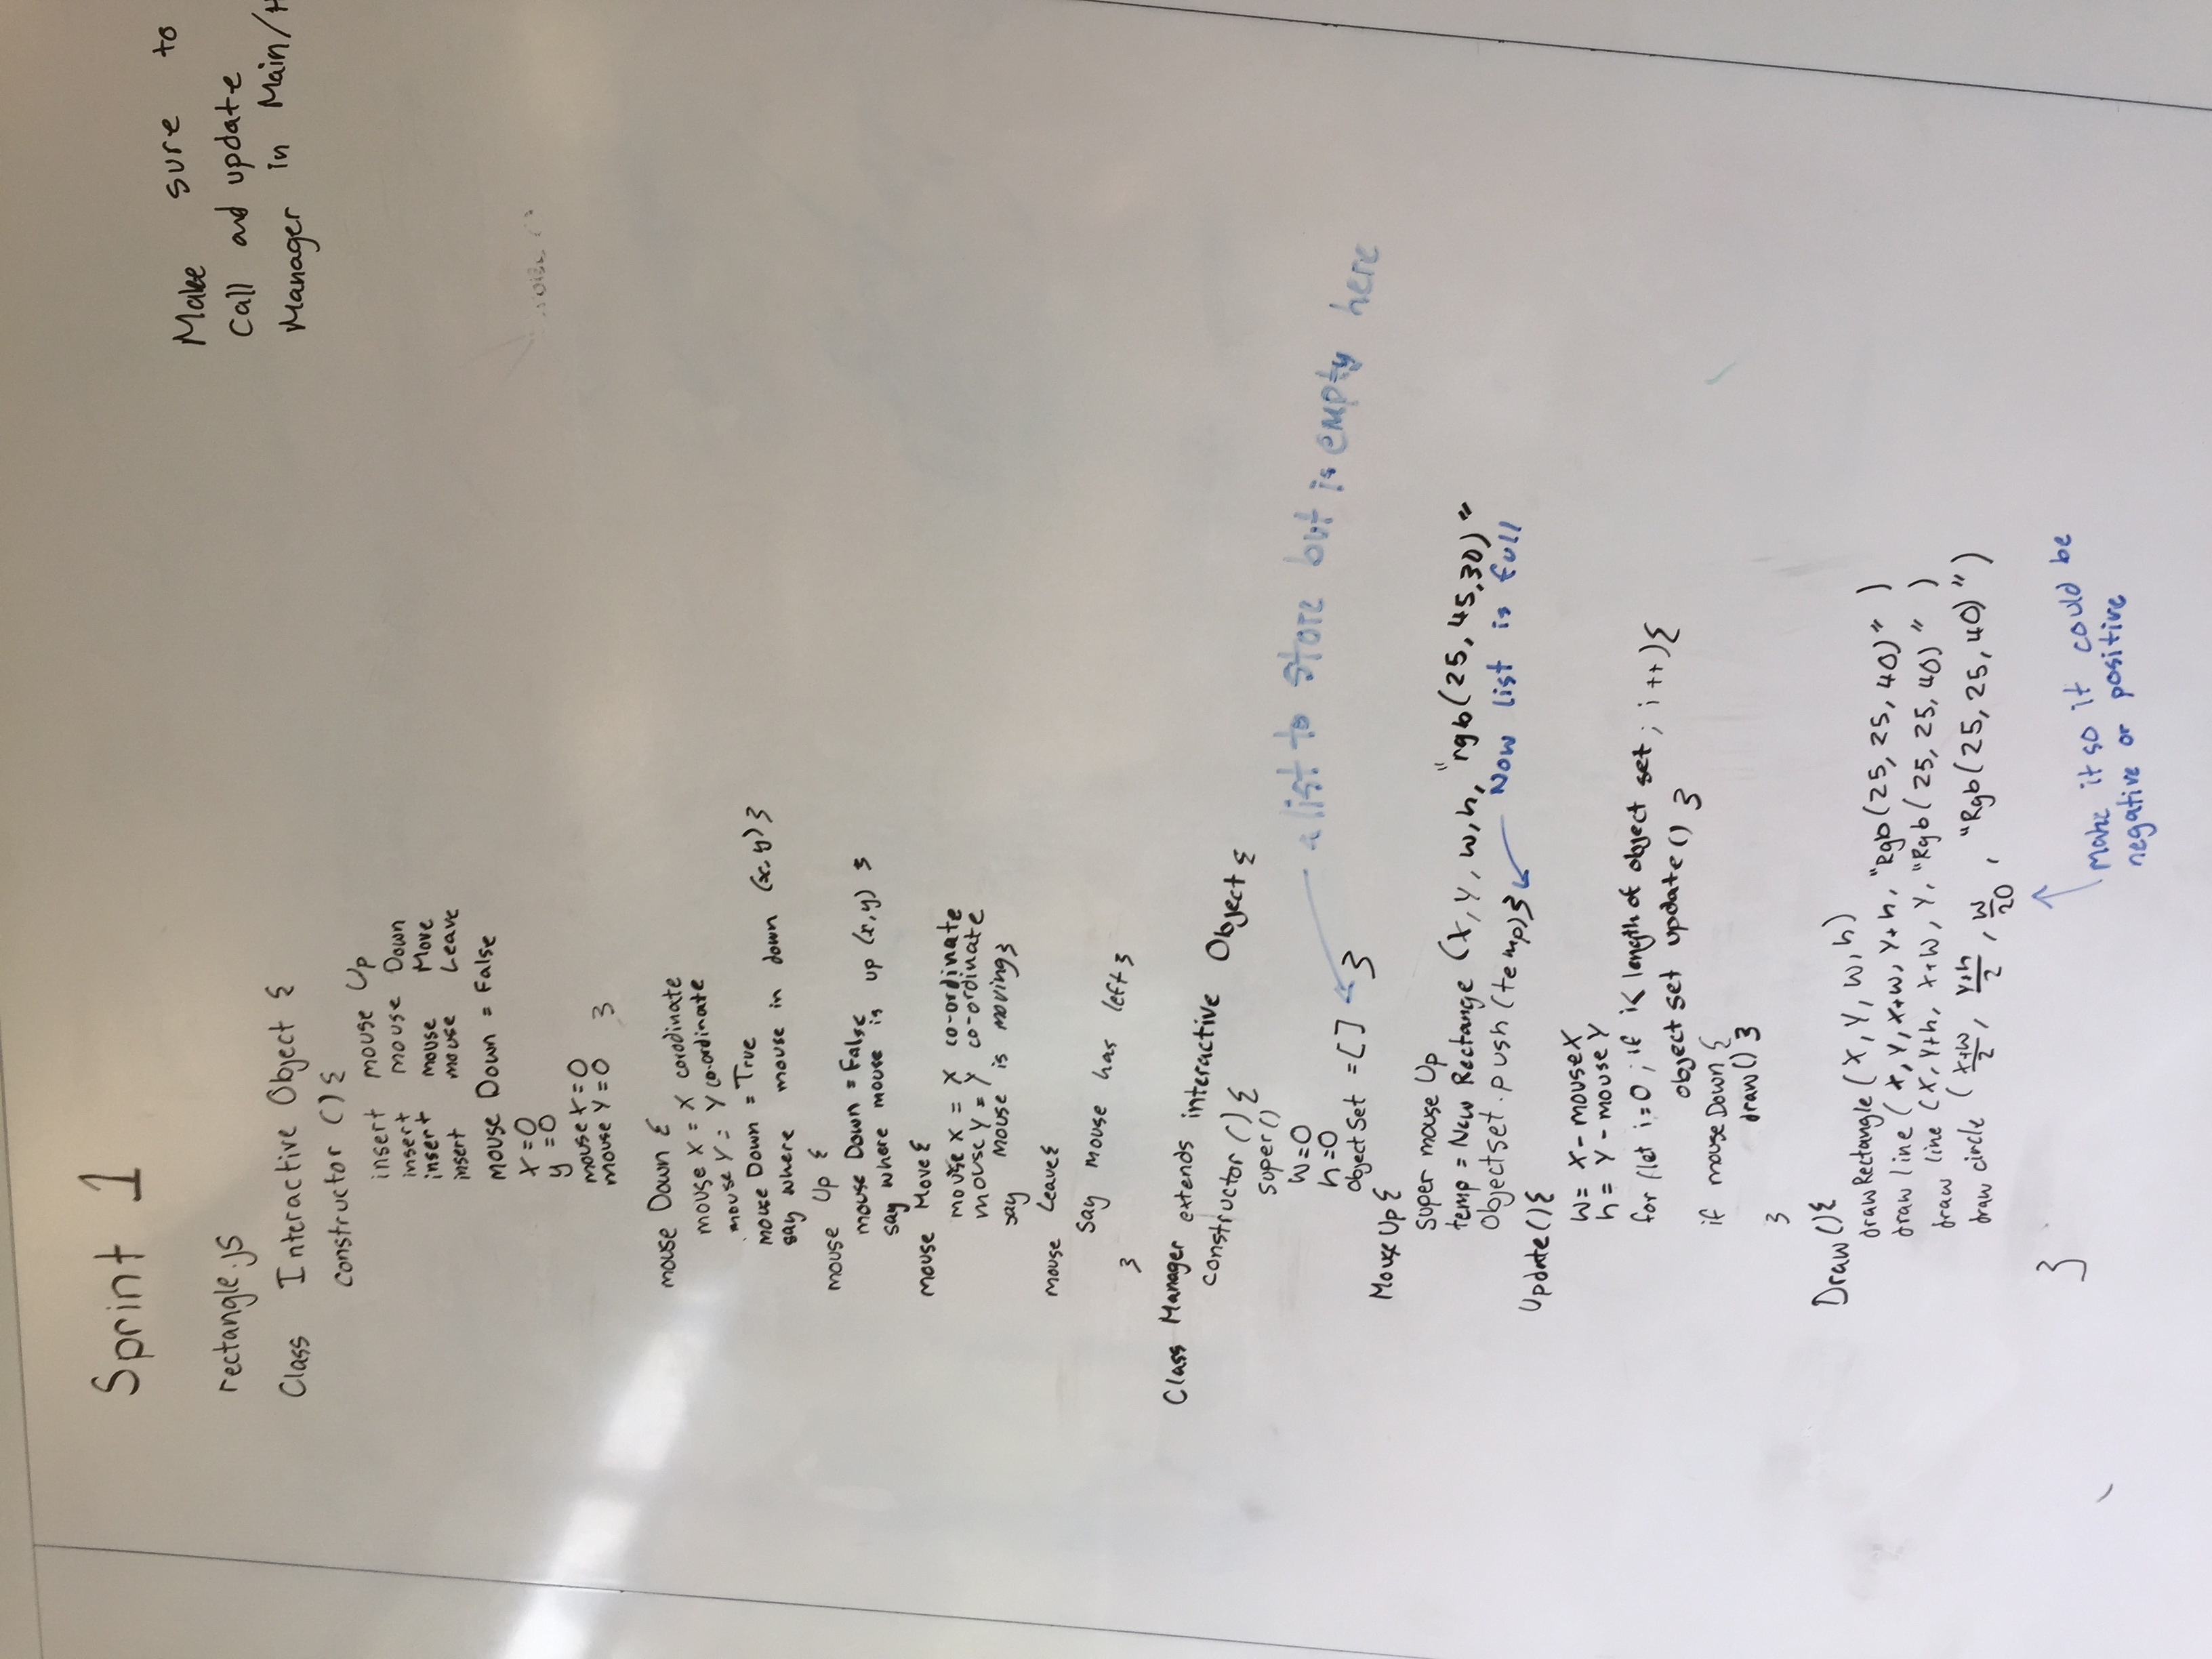 Sprint 1
Make sure to
Call and update
Manager in Main/
rectangle.js
Class Interactive Object {
constructor () {
insert mouse Up
insert mouse Down
insert mouse Move
insert mouse Leave
mouse Down = False
X = 0
y = 0
mouse X = 0
mouse Y = 0 }
mouse Down {
mouse X = X corodinate
mouse Y = Y co-ordinate
mouse Down = True
say where mouse in down (x, y) }
mouse Up {
mouse Down = False
say where mouse is up (x, y) }
mouse Move {
mouse X = X co-ordinate
mouse Y = Y co-ordinate
say mouse is moving }
mouse Leave {
Say mouse has left }
}
Class Manager extends interactive Object {
constructor () {
super ()
W = 0
h = 0
a list to store but is empty here
Object Set = [ ] }
Mouse Up {
super mouse Up
temp = New Rectange (X, Y, w, h, "rgb(25, 45, 30)"
Objectset.push (temp) }
Now list is full
Update () {
W = X - mouse X
h = Y - mouse Y
for (let i = 0 ; if i < length of object set ; i ++) {
object set update () }
if mouse Down {
draw () }
}
Draw () {
draw Rectangle (X, Y, W, h)
draw line (X, Y, X+W, Y+h, "Rgb(25, 25, 40)" )
draw line (X, Y+h, X+W, Y, "Rgb(25, 25, 40) " )
draw circle ( X+W/2, Y+h/2, W/20, "Rgb(25, 25, 40) ")
}
Make it so it could be
negative or positive